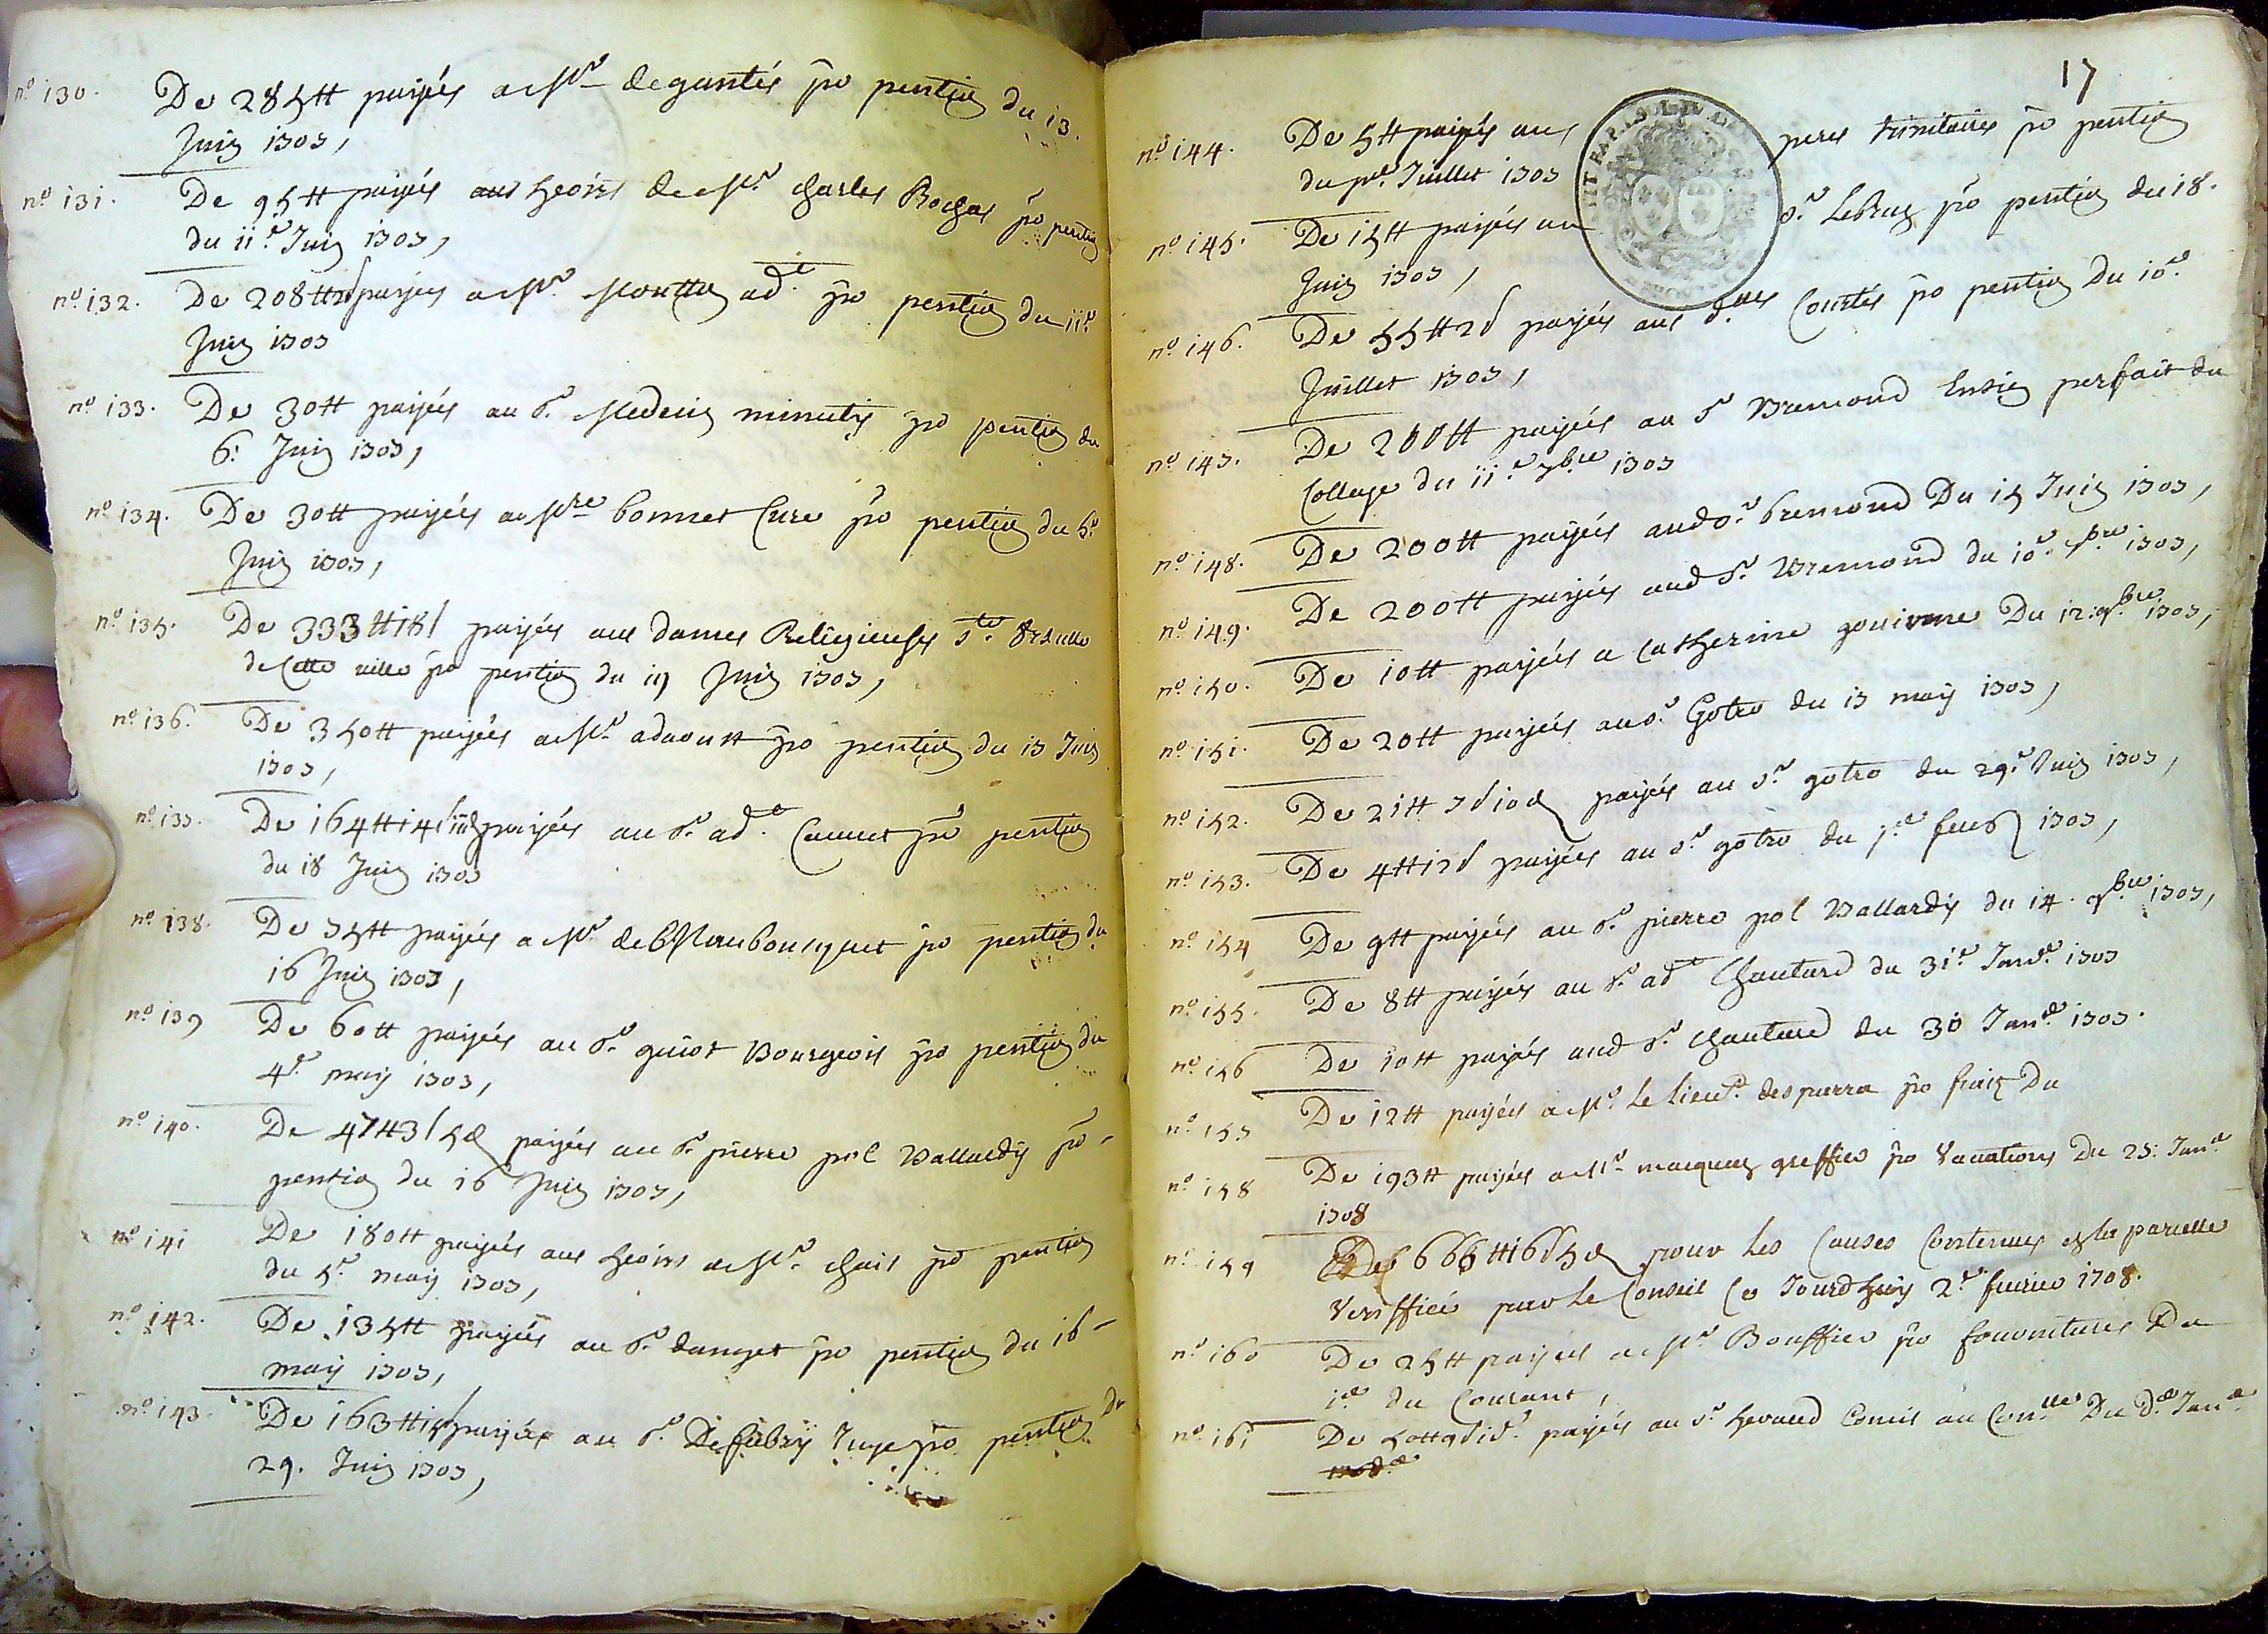 n.º 130. De 285 ₶ payés a Mr degantés po pention du 13.
Juin 1707,
n.º 131. De 95 ₶ payés aus heoirs de Mr. charles Rochas po pention
du 11.e Juin 1707,
n.º 132. De 208 ₶ payés a Mr. ad.t po pention du 11.e
Juin 1707
n.º 133. De 30 ₶ payés au sr. Medecin minuty po pention du
6.e Juin 1707,
n.º 134. De 30 ₶ payés a Mre bonnet Cure po pention du 5.e
Juin 1707,
n.º 135. De 333 ₶ 18 s payés aus dames Religieuses Ste. Ursulle
de Cette ville po pention du 19 Juin 1707,
n.º 136. De 350 ₶ payés a Mr. adaoust po pention du 17 Juin
1707,
n.º 137. De 164 ₶ 14 s payés au sr. ad.t po pention
du 18 Juin 1707
n.º 138. De 75 ₶ payés a Mr. de Maubousquet po pention du
16 Juin 1707,
n.º 139 De 60 ₶ payés au sr. guiot Bourgeois po pention du
4.e may 1707,
n.º 140. De 47 ₶ 3 s 5 d payés au sr. pierre pol Vallardy po
pention du 16 Juin 1707,
n.º 141 De 180 ₶ payés aus heoirs de Mr. chais po pention
du 5.e may 1707,
n.º 142. De 135 ₶ payés au sr. po pention du 16
may 1707,
n.º 143. De 163 ₶ payés au sr. De fabry Juge po pention du
29. Juin 1707,
17
n.º 144. De 5 ₶ payés aus peres trinitaires po pention
du pr. Juillet 1707
n.º 145. De 15 ₶ payés au sr. Lebrun po pention du 18.
Juin 1707,
n.º 146. De 55 ₶ 2 s payés aus dlles Courtés po pention Du 10.e
Juillet 1707,
n.º 147. De 200 ₶ payés au sr Bremond perfait du
College du 11.e 7bre 1707
n.º 148. De 200 ₶ payés aud sr. bremond Du 15 Juin 1707,
n.º 149. De 200 ₶ payés aud sr. Bremond du 10.e 9bre 1707,
n.º 150. De 10 ₶ payés a Catherine gouironne Du 12. 9bre 1707,
n.º 151. De 20 ₶ payés au sr. Gotro du 13 may 1707,
n.º 152. De 21 ₶ 7 s 10 d payés au sr. gotro du 29.e Juin 1707,
n.º 153. De 4 ₶ 12 s payés au sr. gotro du 7.e feur 1707,
n.º 154 De 9 ₶ payés au sr. pierre pol Vallardy du 14. 9bre 1707,
n.º 155. De 8 ₶ payés au sr. ad.t Chautard du 31.e Janv. 1707
n.º 156 De 10 ₶ payés aud sr. Chautard du 30 Janv. 1707.
n.º 157 De 12 ₶ payés a Mr. Le lieut. desparra po frais Du
n.º 158 De 193 ₶ payés a Mr. greffier po Vacations Du 25. Janv.
1708
n.º 159 De 666 ₶ 16 s 5 d pour les Causes Contenues es la parcelle
Veriffiée par le Conseil Ce Jourdhuy 2.e feurier 1708.
n.º 160 De 25 ₶ payés a Mr. Bouffier po fournitures Du
1.er du Courant,
n.º 161 De payés au sr. heraud Comis au Du d. Janv.
1708